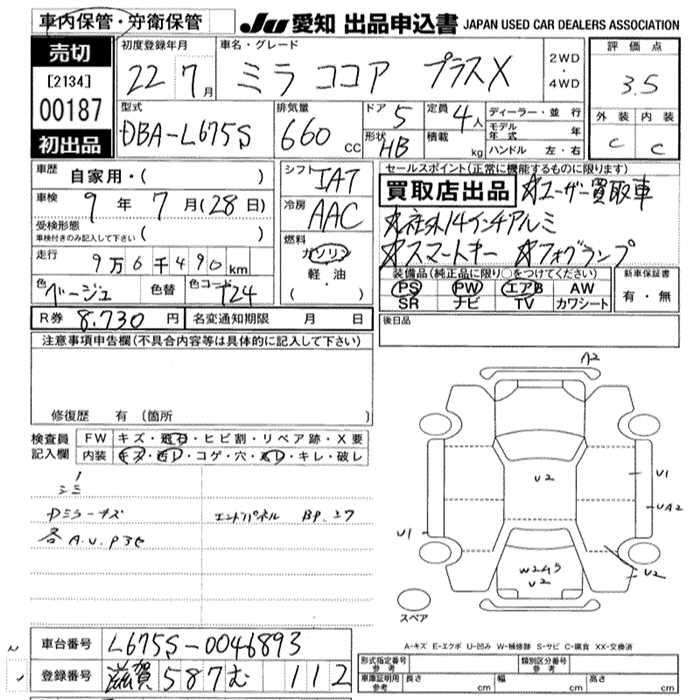 車内保管・守衛保管
JU 愛知 出品申込書 JAPAN USED CAR DEALERS ASSOCIATION
売切
[2134]
00187
初出品
初度登録年月
22 7月
車名・グレード
ミラ ココア プラスX
2WD
・
4WD
評価点
3.5
外装 内装
C C
型式
DBA-L675S
排気量
660 CC
ドア 5
形状 HB
定員 4人
積載 kg
ディーラー・並行
モデル年式 年
ハンドル 左・右
車歴
自家用・( )
車検
9年 7月(28日)
受検形態
車検付きのみ記入して下さい ( )
走行
9万6千490km
色 ベージュ 色替 色コード T24
シフト IAT
冷房 AAC
燃料
ガソリン
軽・油
( ・ )
セールスポイント(正常に機能するものに限ります)
買取店出品 ☆ユーザー買取車
☆社外14インチアルミ
☆スマートキー ☆フォグランプ
装備品(純正品に限り○をつけてください)
PS PW エアB AW
SR ナビ TV カワシート
新車保証書
有・無
R券 8.730円 名変通知期限 月 日
後日品
注意事項申告欄(不具合内容等は具体的に記入して下さい)
修復歴 有(箇所
検査員記入欄
FW キズ・飛石・ヒビ割・リペア跡・X要
内装 キズ・汚レ・コゲ・穴・凹レ・キレ・破レ
シミ
Dミラーキズ エンドパネル BP.37
各A.U.P多
A2
U2
U1
UA2
U1
U2
W2U5
U2
スペア
A-キズ E-エクボ U-凹み W-補修跡 S-サビ C-腐食 XX-交換済
車台番号 L675S-0046893
登録番号 滋賀 587 む 112
型式指定番号 参考
類別区分番号 参考
車庫証明用 参考 長さ cm 幅 cm 高さ cm